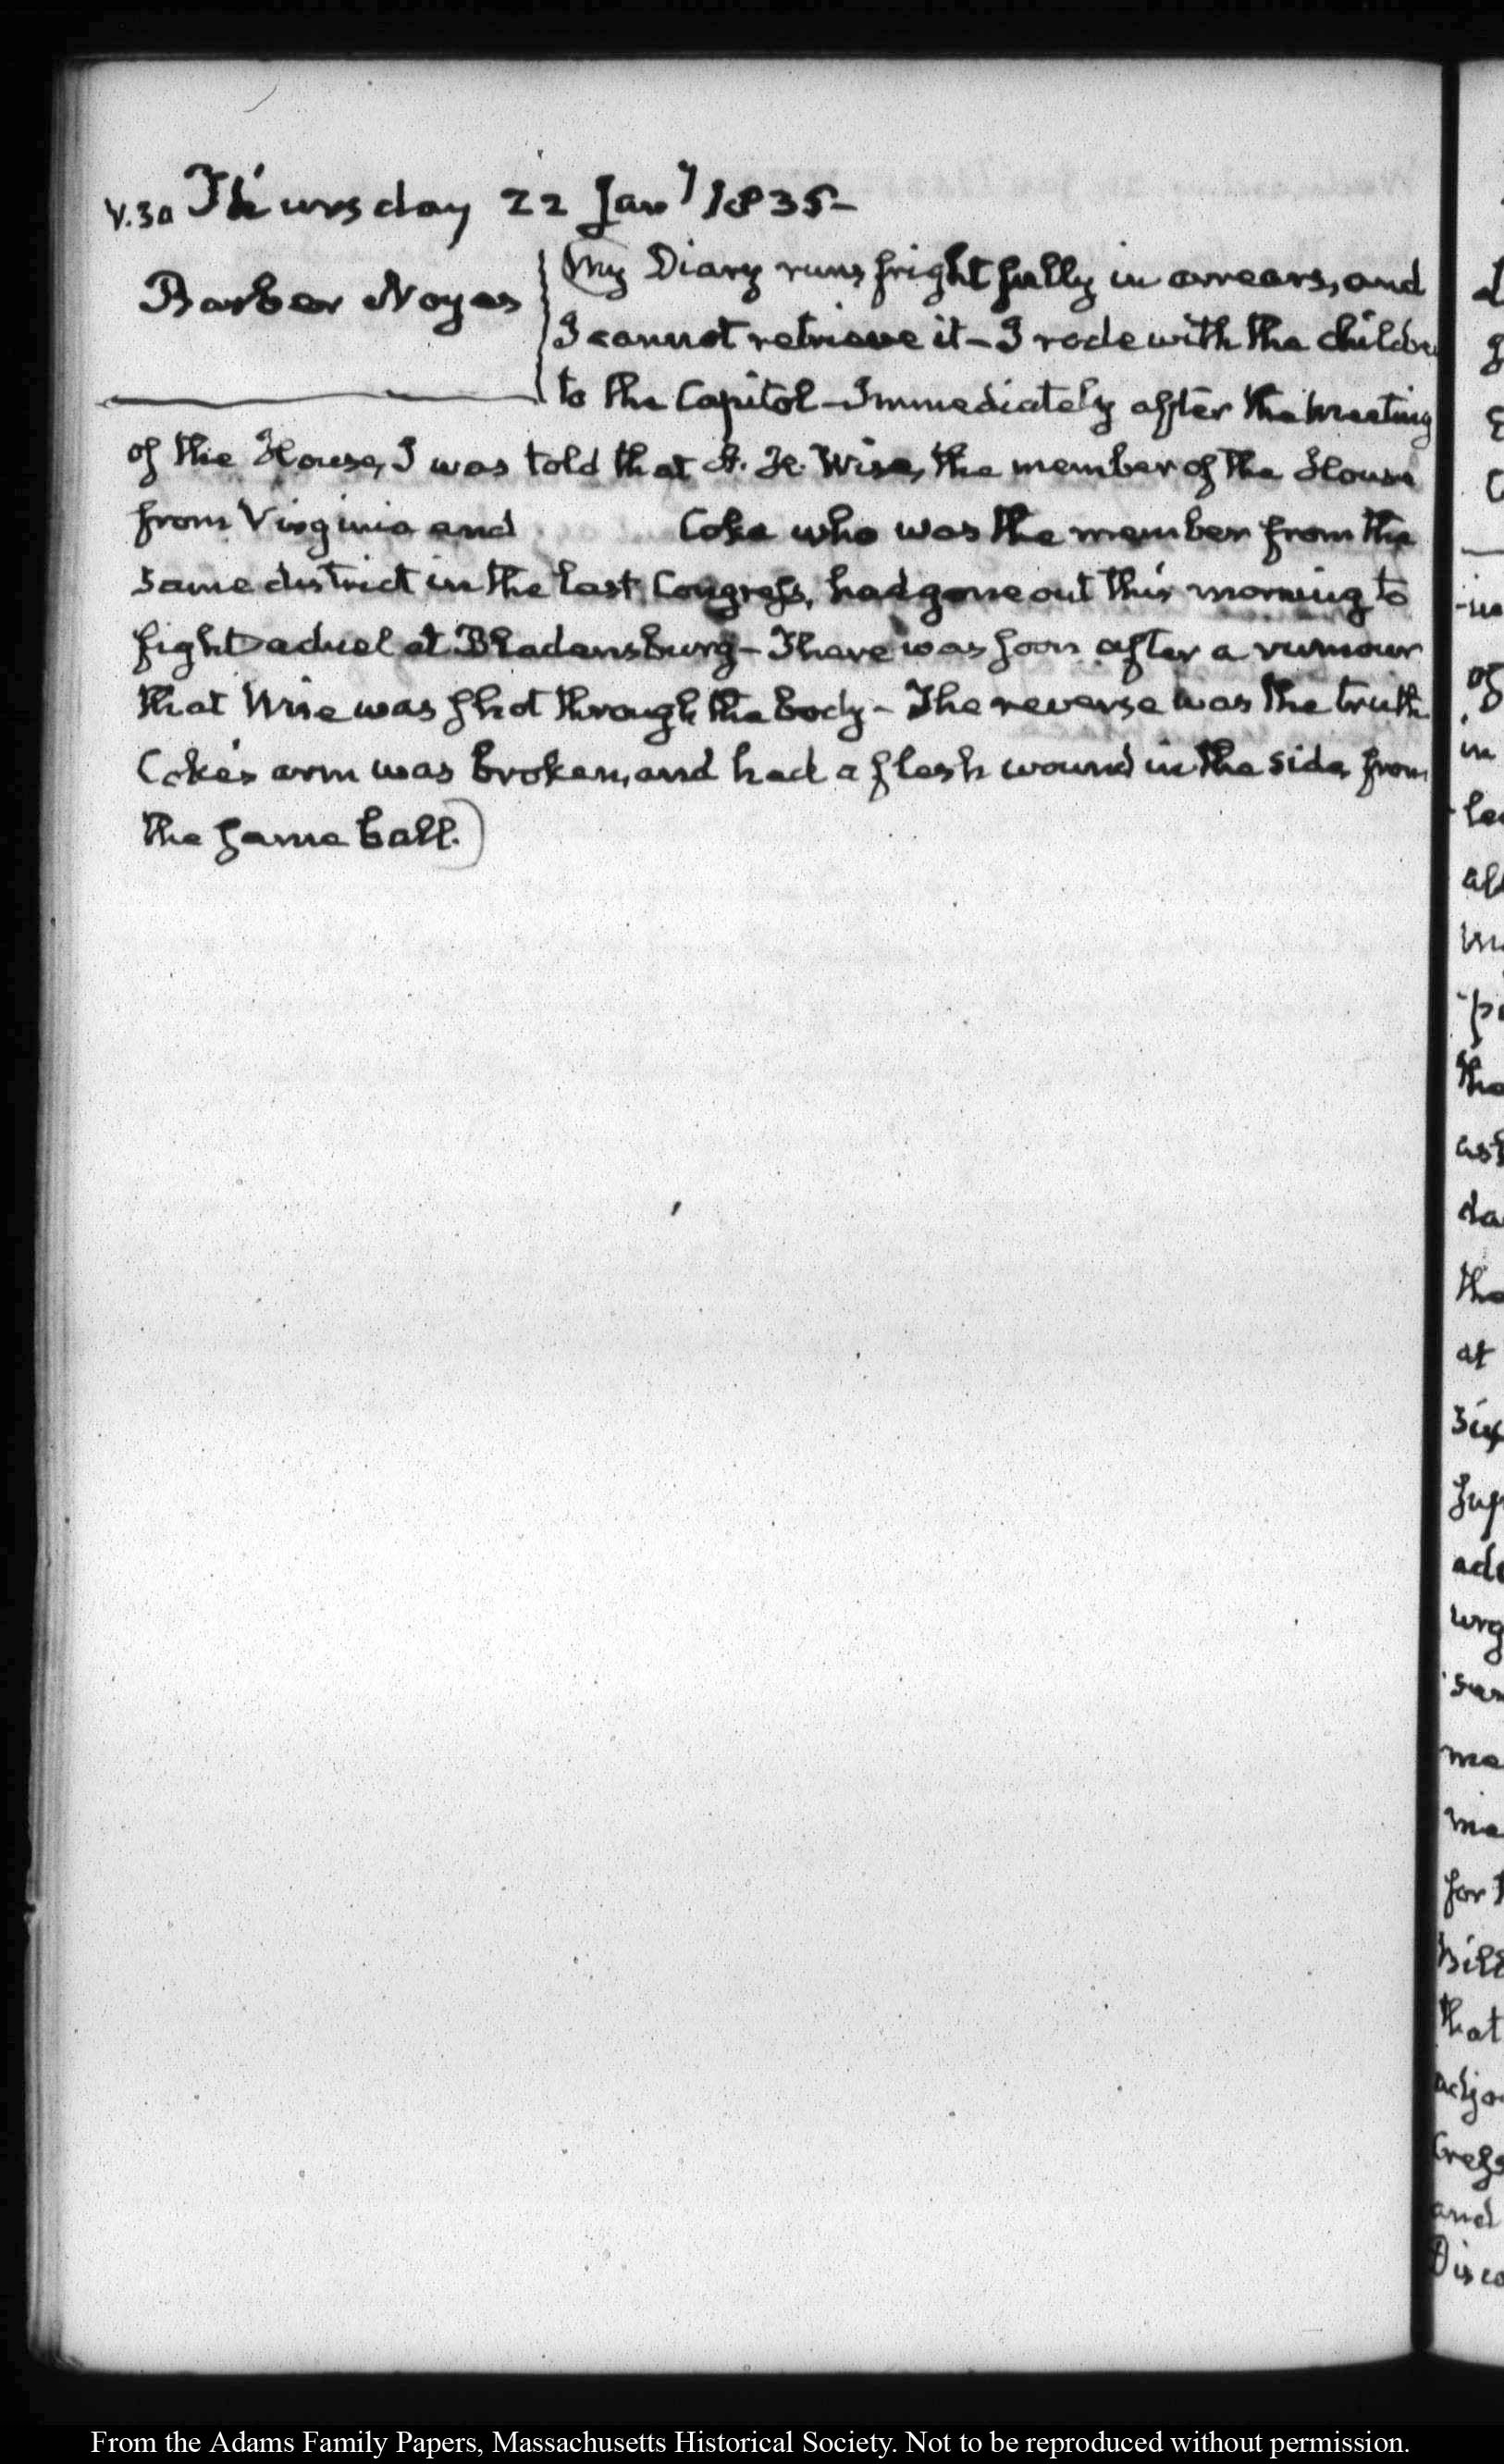 V.30 Thursday 22 Jany 1835-
Barber Noyes
My Diary runs frightfully in arrears, and
I cannot retrieve it - I rode with the children
to the Capitol - Immediately after the meeting
of the House, I was told that H. A. Wise, the member of the House
from Virginia and Coke who was the member from the
same district in the last Congress, had gone out this morning to
fight a duel at Bladensburg - There was soon after a rumour
that Wise was shot through the body - The reverse was the truth
Coke's arm was broken, and had a flesh wound in the side, from
the same ball.)
From the Adams Family Papers, Massachusetts Historical Society. Not to be reproduced without permission.